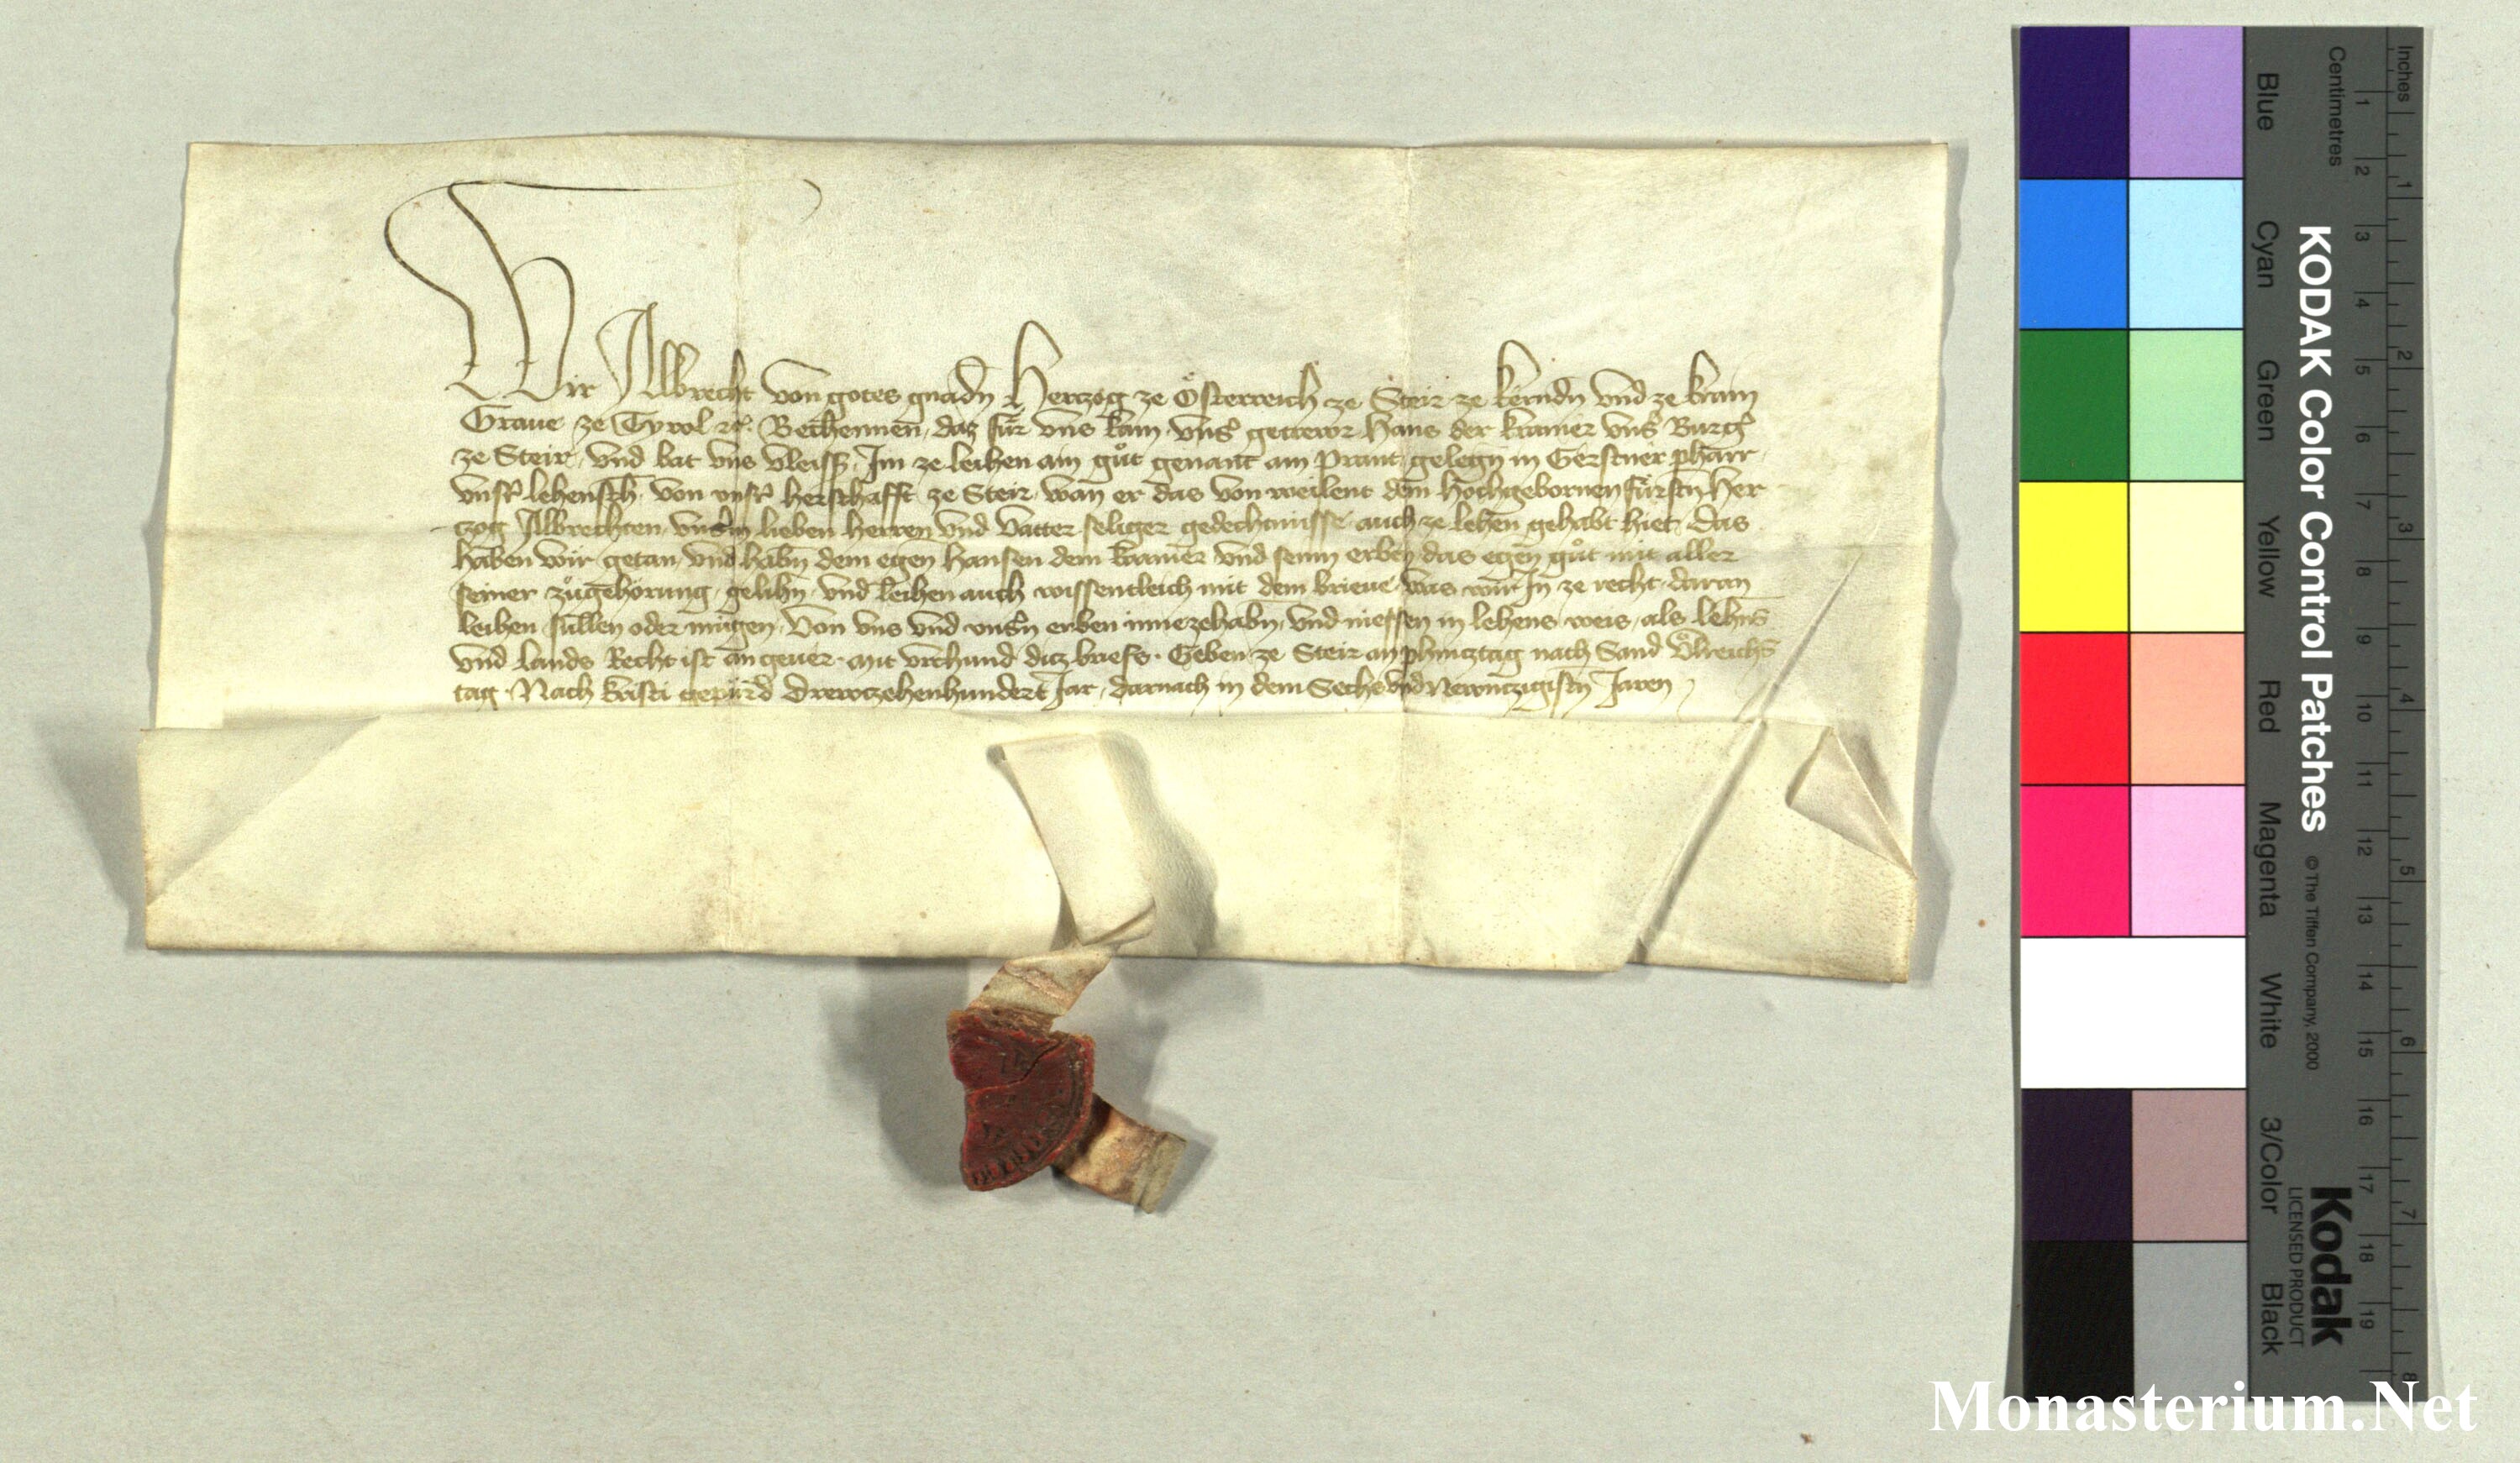 Wir Albrecht von gotes gnadn Hertzog ze Österreich ze Steir ze kerndn vnd ze krain
Graue ze Tyrol etc. Bechennen, daz für vns kam vnser getrewr Hans der kramer vnser Burger
ze Steir, vnd bat vns vleiss. Im ze leihen ain gůt genant am Prant, gelegn in Gerstner pharr
vnsr lehensch. von vnsr herschafft ze Steir, wan er das von weilent dem hochgebornen fürstn Her
tzog Albrechten, vnserm lieben herren vnd vatter seliger gedechtnüsse auch ze lehen gehabt hiet. Das
haben wir getan, vnd habn dem egen hansen dem kramer vnd seinn erben das egen gůt mit aller
seiner zůgehörung, gelihn, vnd leihen auch wissentleich mit dem brieue, was wir In ze recht daran
leihen sullen oder mügen, Von vns vnd vnsern erben innezehabn, vnd niessen in lehens weis, als lehns
vnd lands Recht ist an geuer. Mit vrchund ditz briefs. Geben ze Steir an phintztag nach Sand Vͦlreichs
tag. Nach kristi gepürd Drewtzehenhundert Jar, darnach in dem Sechs vnd Newntzigistn Jaren
Inches
Centimetres
1 2 3 4 5 6 7 8 9 10 11 12 13 14 15 16 17 18 19
1 2 3 4 5 6 7 8
KODAK Color Control Patches
© The Tiffen Company, 2000
Kodak
LICENSED PRODUCT
Blue
Cyan
Green
Yellow
Red
Magenta
White
3/Color
Black
Monasterium.Net